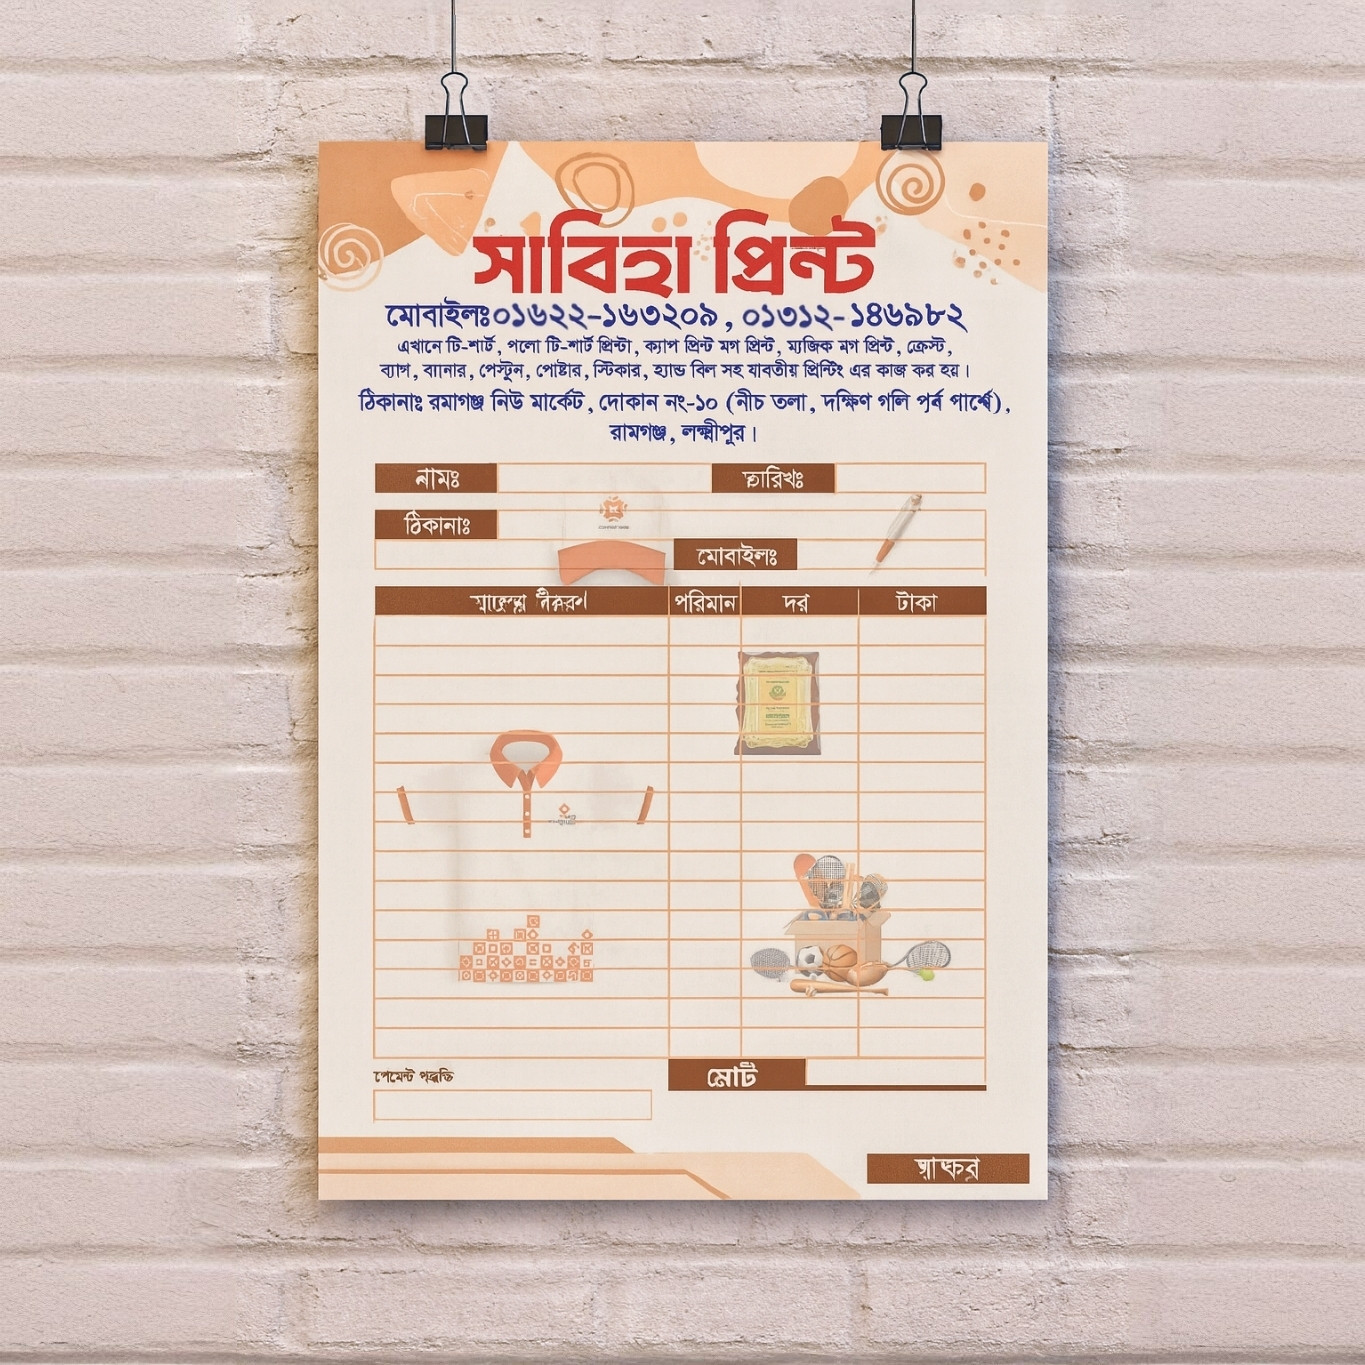 সাবিহা প্রিন্ট
মোবাইলঃ ০১৬২২-১৬৩২০৯, ০১৩১২-১৪৬৯৮২
এখানে টি-শার্ট, পলো টি-শার্ট প্রিন্টা, ক্যাপ প্রিন্ট মগ প্রিন্ট, ম্যজিক মগ প্রিন্ট, ক্রেস্ট,
ব্যাগ, ব্যানার, পেস্টুন, পোষ্টার, স্টিকার, হ্যান্ড বিল সহ যাবতীয় প্রিন্টিং এর কাজ কর হয়।
ঠিকানাঃ রমাগঞ্জ নিউ মার্কেট, দোকান নং-১০ (নীচ তলা, দক্ষিণ গলি পূর্ব পার্শ্বে),
রামগঞ্জ, লক্ষ্মীপুর।
নামঃ তারিখঃ
ঠিকানাঃ
মোবাইলঃ
পরিমান দর টাকা
পেমেন্ট পদ্ধতি মোট